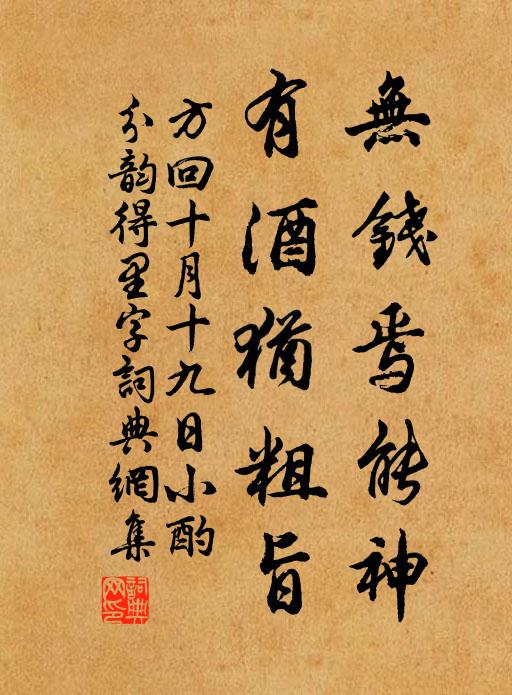 無錢焉能神
有酒猶粗旨
方回十月十九日小酌
分韵得里字詞典網集
詞典网印